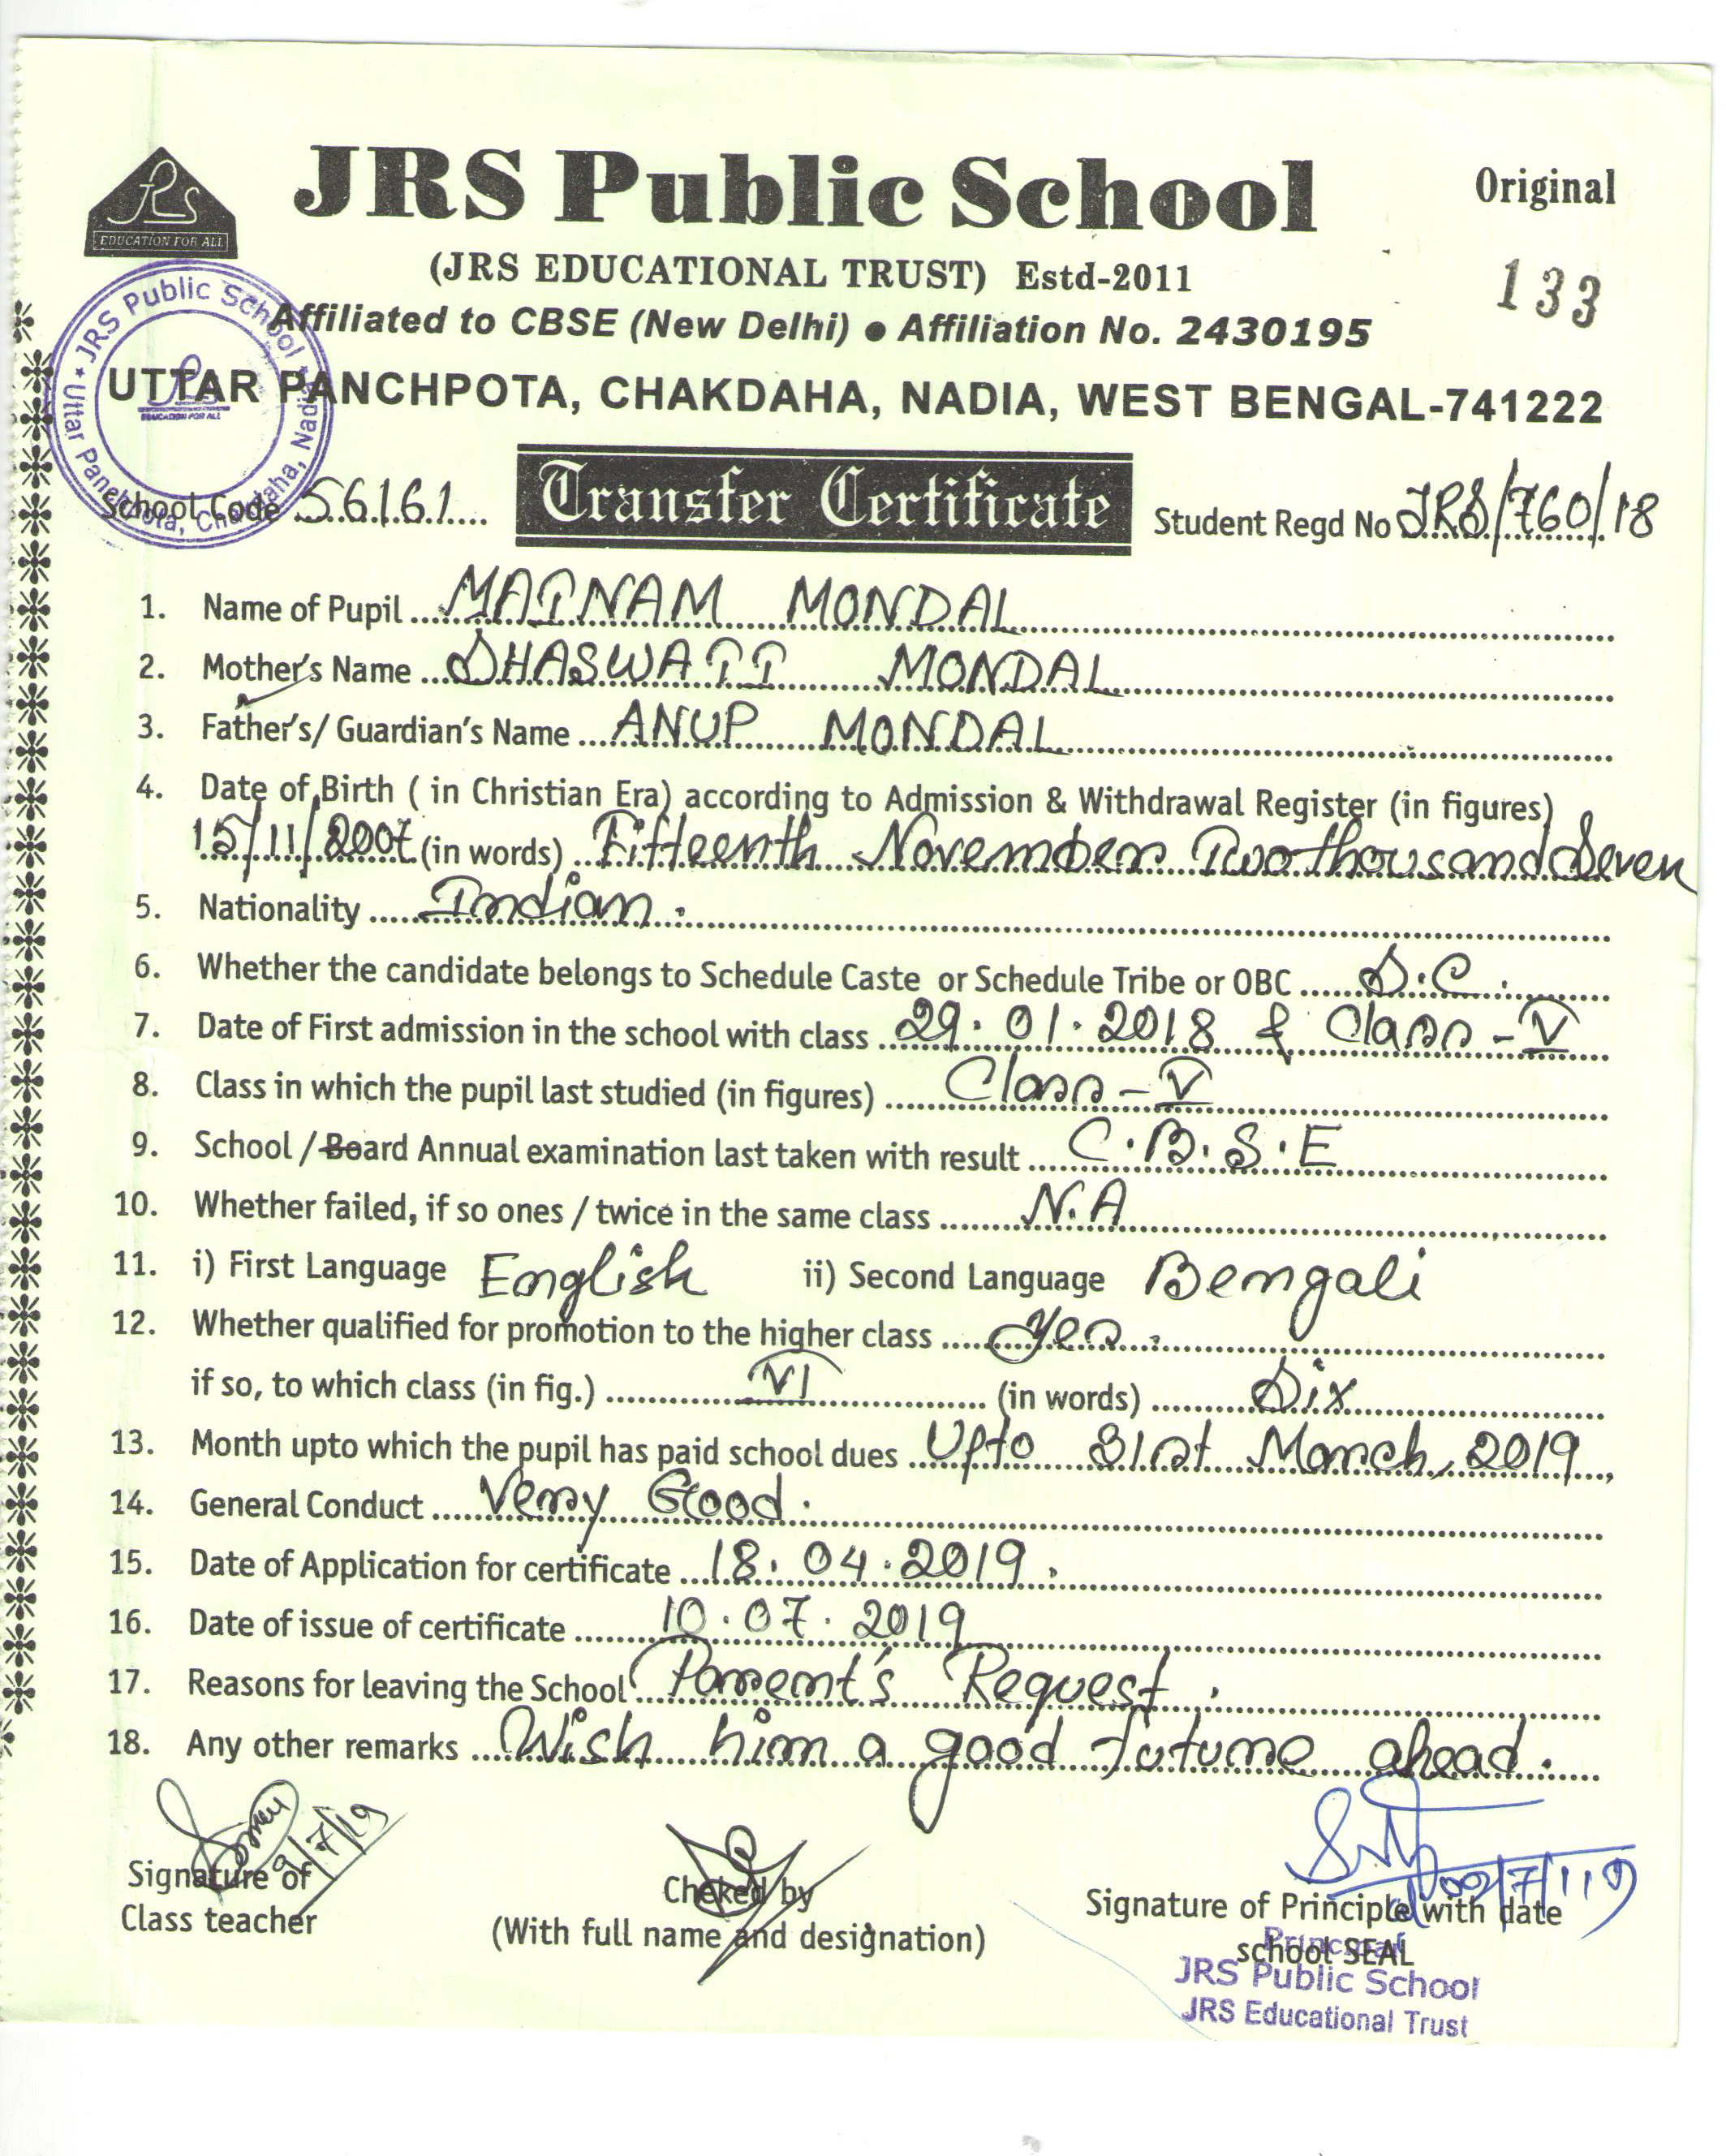 JRS Public School
Original
JRS
EDUCATION FOR ALL
(JRS EDUCATIONAL TRUST) Estd-2011
133
Affiliated to CBSE (New Delhi) ● Affiliation No. 2430195
JRS Public School ★ Uttar Panchpota, Chakdaha, Nadia ★
EDUCATION FOR ALL
UTTAR PANCHPOTA, CHAKDAHA, NADIA, WEST BENGAL-741222
School Code 56161
Transfer Certificate
Student Regd No JRS/760/18
1. Name of Pupil MAINAM MONDAL
2. Mother's Name SHASWATI MONDAL
3. Father's/ Guardian's Name ANUP MONDAL
4. Date of Birth ( in Christian Era) according to Admission & Withdrawal Register (in figures)
15/11/2007 (in words) Fifteenth November Two thousand Seven
5. Nationality Indian.
6. Whether the candidate belongs to Schedule Caste or Schedule Tribe or OBC S.C.
7. Date of First admission in the school with class 29.01.2018 & Class - V
8. Class in which the pupil last studied (in figures) Class - V
9. School / Board Annual examination last taken with result C.B.S.E
10. Whether failed, if so ones / twice in the same class N.A
11. i) First Language English ii) Second Language Bengali
12. Whether qualified for promotion to the higher class Yes.
if so, to which class (in fig.) VI (in words) Six
13. Month upto which the pupil has paid school dues Upto 31st March, 2019
14. General Conduct Very Good.
15. Date of Application for certificate 18.04.2019.
16. Date of issue of certificate 10.07.2019
17. Reasons for leaving the School Parent's Request.
18. Any other remarks Wish him a good future ahead.
9/7/19
Signature of
Class teacher
Cheked by
(With full name and designation)
09/7/19
Signature of Principle with date
school SEAL
Principal
JRS Public School
JRS Educational Trust